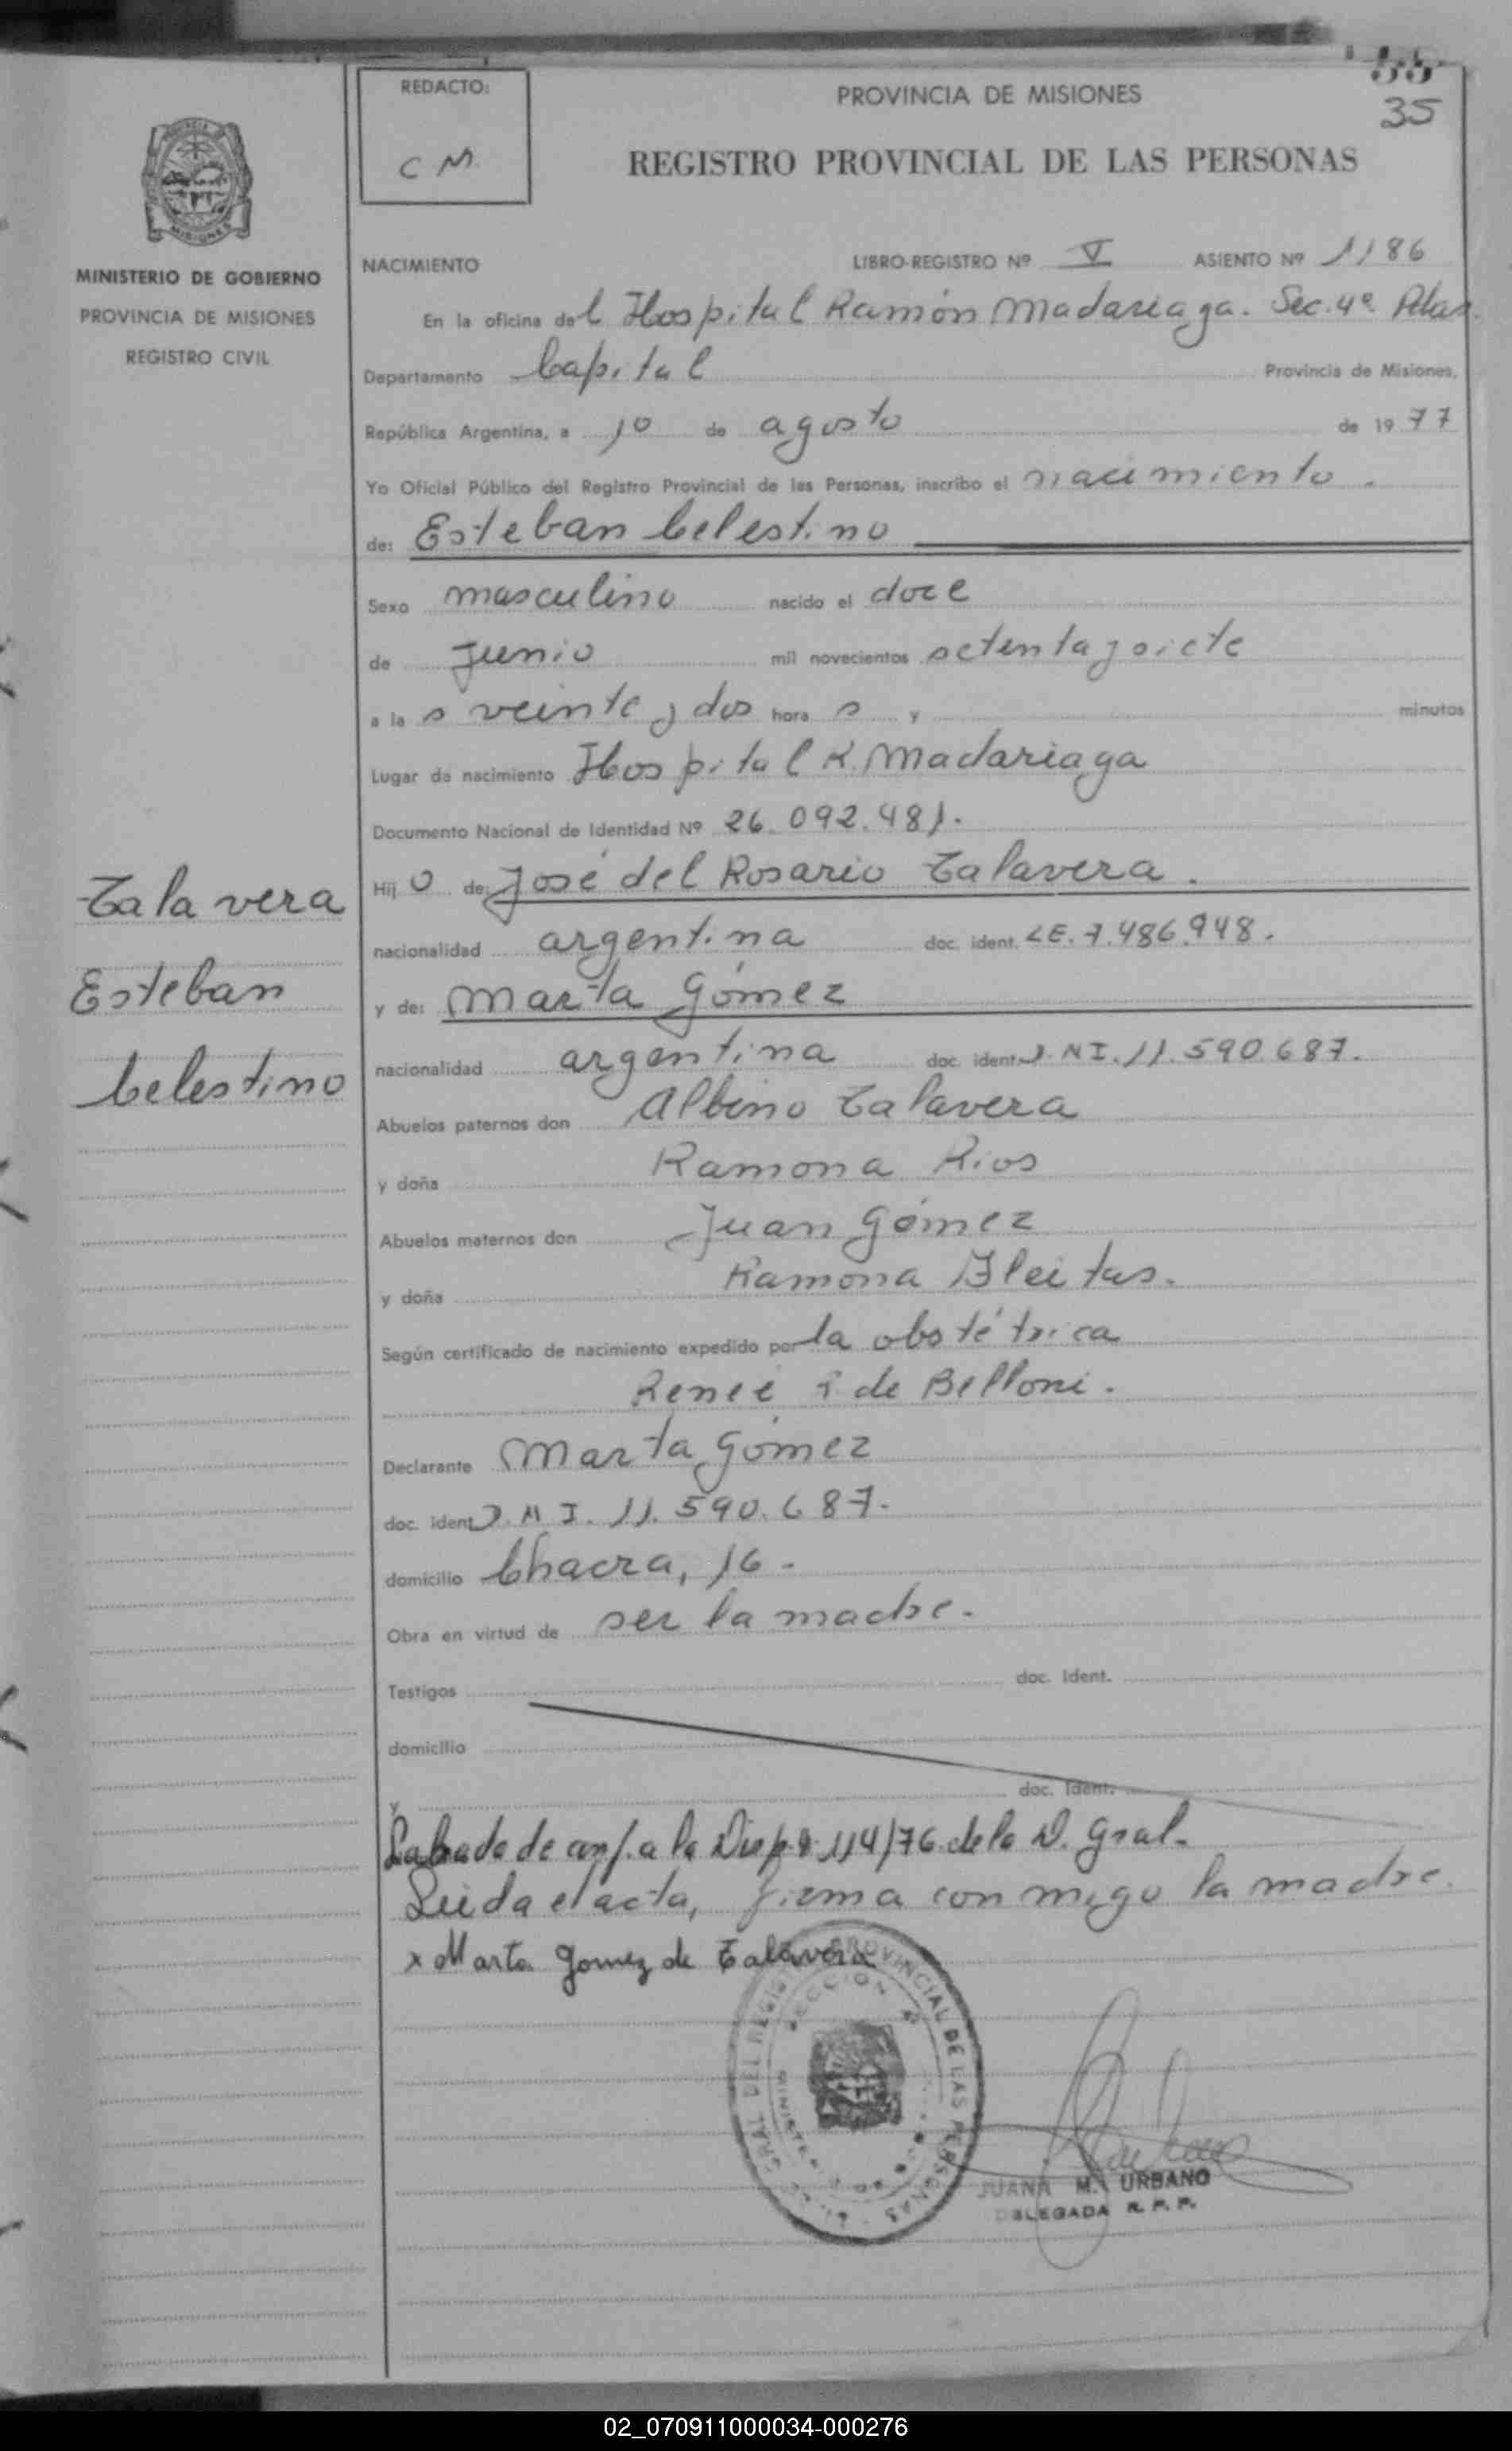 REDACTO:
C M.
35
35
PROVINCIA DE MISIONES
REGISTRO PROVINCIAL DE LAS PERSONAS
MISIONES
MINISTERIO DE GOBIERNO
PROVINCIA DE MISIONES
REGISTRO CIVIL
NACIMIENTO LIBRO-REGISTRO Nº V ASIENTO Nº 1186
En la oficina del Hospital Ramón Madariaga. Sec. 4ª Pdas.
Departamento Capital Provincia de Misiones,
República Argentina, a 10 de agosto de 1977
Yo Oficial Público del Registro Provincial de las Personas, inscribo el nacimiento.
de: Esteban Celestino
Sexo masculino nacido el doce
de Junio mil novecientos setenta y siete
a las veinte y dos horas y minutos
Lugar de nacimiento Hospital R. Madariaga
Documento Nacional de Identidad Nº 26.092.481.
Hijo de: José del Rosario Talavera.
nacionalidad argentina doc. ident. LE. 7.486.948.
y de: Marta Gómez
nacionalidad argentina doc. ident. D.N.I. 11.590.687.
Abuelos paternos don Albino Talavera
y doña Ramona Rios
Abuelos maternos don Juan Gómez
y doña Ramona Fleitas.
Según certificado de nacimiento expedido por la obstétrica
Reneé de Belloni.
Declarante Marta Gómez
doc. ident. D.N.I. 11.590.687.
domicilio Chacra, 16.
Obra en virtud de ser la madre.
Testigos doc. Ident.
domicilio
y doc. Ident.
Labrada de conf. a la Disp. 114/76 de la D. Gral.
Leida el acta, firma conmigo la madre.
x Marta Gomez de Talavera
Talavera
Esteban
Celestino
GRAL DEL REGISTRO PROVINCIAL DE LAS PERSONAS
SECCION 4ª
JUANA M. URBANO
DELEGADA R. P. P.
02_070911000034-000276